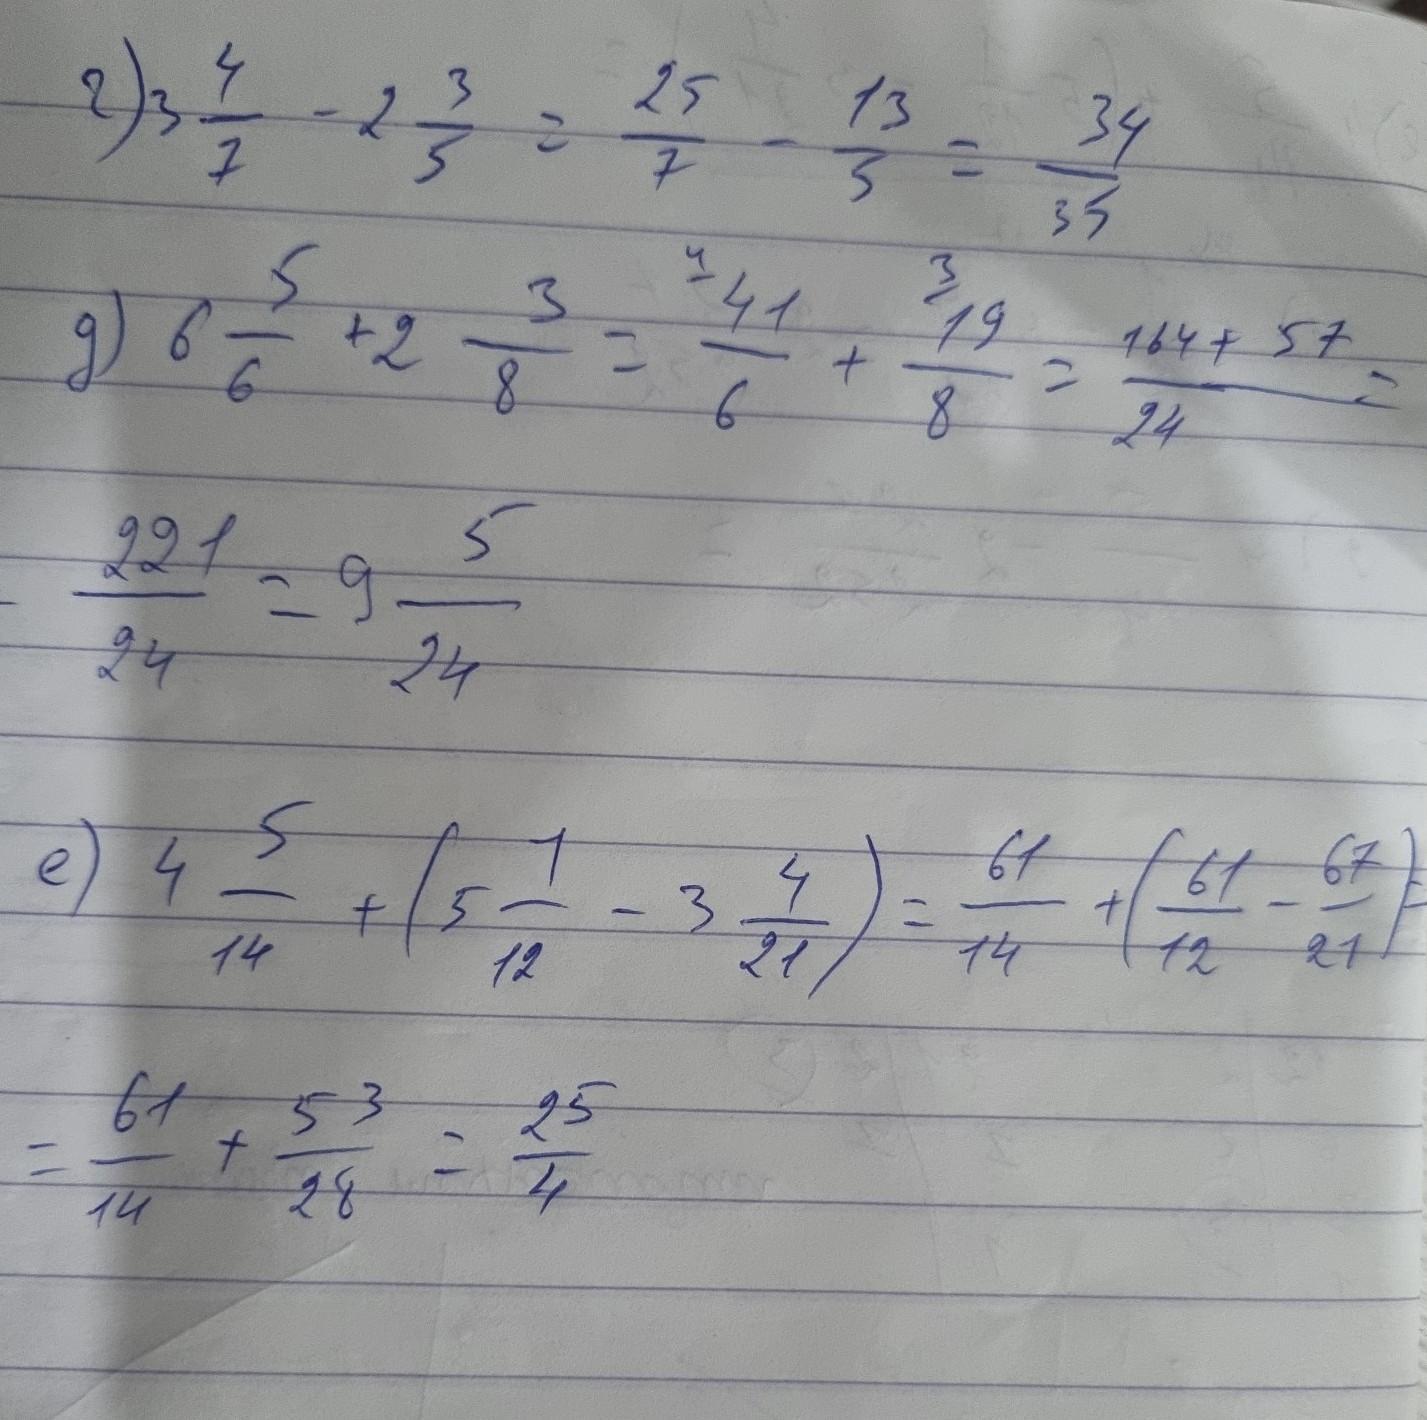 г) 3 4/7 - 2 3/5 = 25/7 - 13/5 = 34/35
д) 6 5/6 + 2 3/8 = 4 41/6 + 3 19/8 = 164 + 57/24 =
- 221/24 = 9 5/24
е) 4 5/14 + (5 1/12 - 3 4/21) = 61/14 + (61/12 - 67/21) =
= 61/14 + 53/28 = 25/4